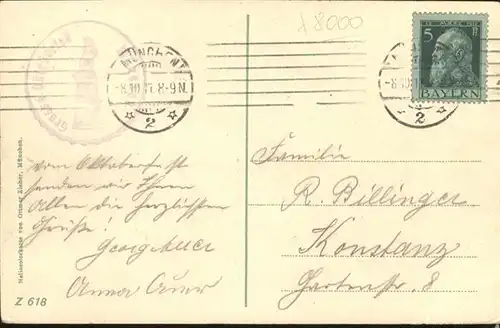 x8000
MÜNCHEN
-8.10.11. 8-9 N.
2
5 Pf
BAYERN
-8.10.11
2
vom Oktoberfest
senden wir Ihnen
Allen die herzlichsten
Grüße!
Georg Auer
Anna Auer
Familie
R. Billinger
Konstanz
Gartenstr. 8
Reliefkarte von Ottmar Zieher, München.
Z 618